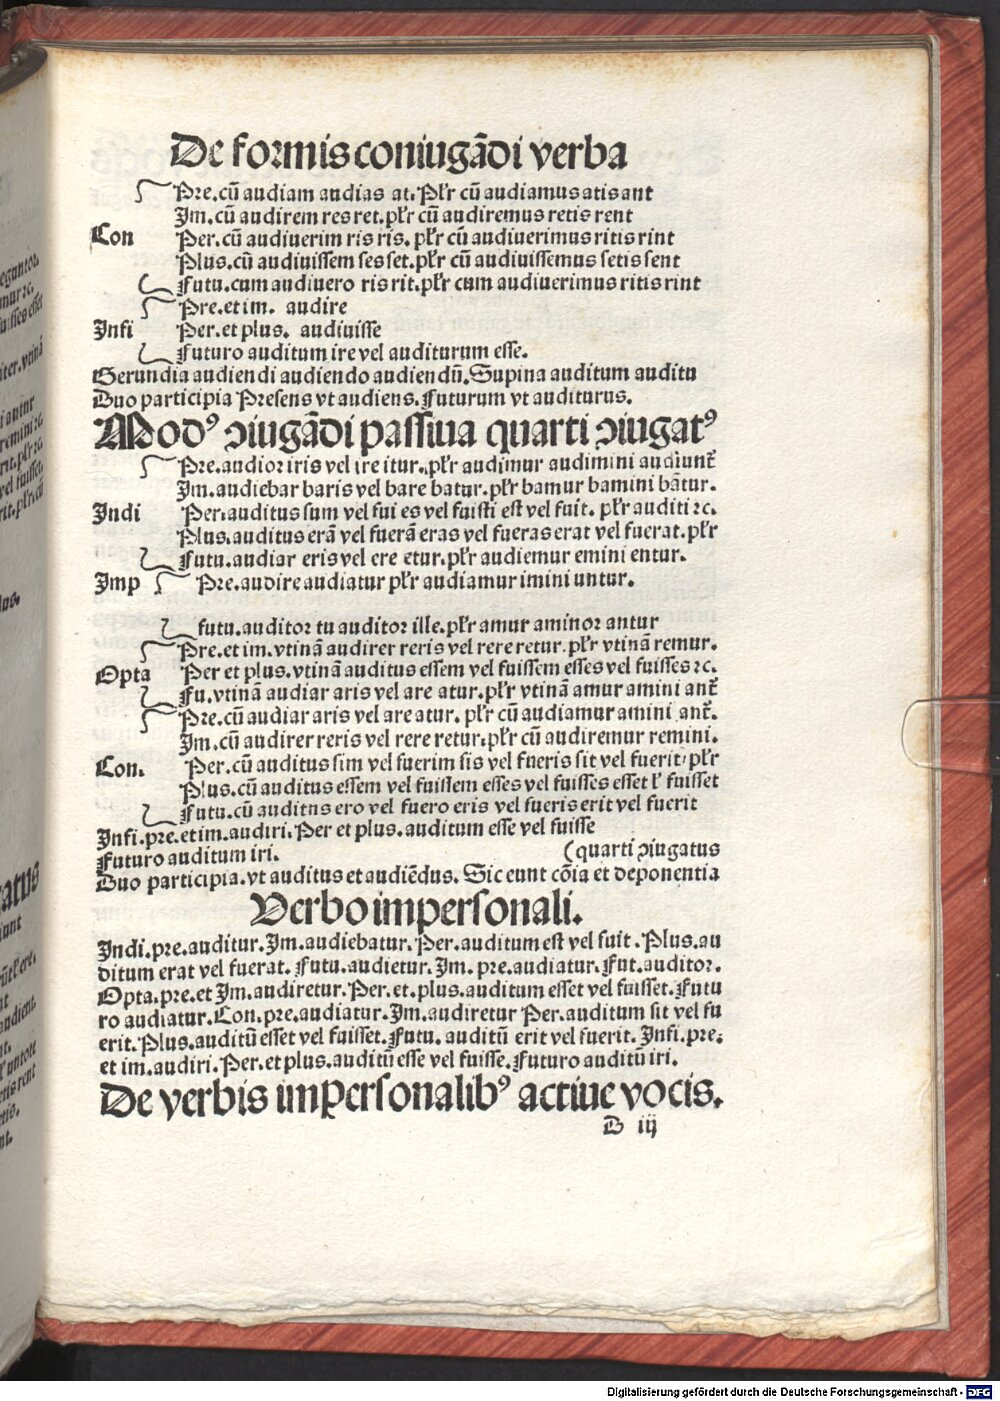 De formis coniugādi verba
Pre.cū audiam audias at.Pl̄r cū audiamus atis ant
Im.cū audirem res ret.pl̄r cū audiremus retis rent
Con Per.cū audiuerim ris ris. pl̄r cū audiuerimus ritis rint
Plus.cū audiuissem ses set.pl̄r cū audiuissemus setis sent
Futu.cum audiuero ris rit.pl̄r cum audiuerimus ritis rint
Pre.et im. audire
Infi Per.et plus. audiuisse
Futuro auditum ire vel auditurum esse.
Gerundia audiendi audiendo audiendū.Supina auditum auditu
Duo participia Presens vt audiens.Futurum vt auditurus.
Modꝰ ꝯiugādi passiua quarti ꝯiugatꝰ
Pre.audior iris vel ire itur.pl̄r audimur audimini audiunt᷑
Im.audiebar baris vel bare batur.pl̄r bamur bamini bātur.
Indi Per.auditus sum vel fui es vel fuisti est vel fuit. pl̄r auditi ⁊c.
Plus.auditus erā vel fuerā eras vel fueras erat vel fuerat.pl̄r
Futu.audiar eris vel ere etur.pl̄r audiemur emini entur.
Imp Pre.audire audiatur pl̄r audiamur imini untur.
futu.auditor tu auditor ille.pl̄r amur aminor antur
Pre.et im.vtinā audirer reris vel rere retur.pl̄r vtinā remur.
Opta Per et plus.vtinā auditus essem vel fuissem esses vel fuisses ⁊c.
Fu.vtinā audiar aris vel are atur.pl̄r vtinā amur amini ant᷑
Pre.cū audiar aris vel are atur. pl̄r cū audiamur amini ant᷑.
Im.cū audirer reris vel rere retur.pl̄r cū audiremur remini.
Con. Per.cū auditus sim vel fuerim sis vel fueris sit vel fuerit.pl̄r
Plus.cū auditus essem vel fuissem esses vel fuisses esset ł fuisset
Futu.cū auditus ero vel fuero eris vel fueris erit vel fuerit
Infi.pre.et im.audiri.Per et plus.auditum esse vel fuisse
Futuro auditum iri. (quarti ꝯiugatus
Duo participia.vt auditus et audiēdus. Sic eunt cōia et deponentia
Verbo impersonali.
Indi.pre.auditur.Im.audiebatur.Per.auditum est vel fuit.Plus.au
ditum erat vel fuerat. Futu.audietur.Im. pre.audiatur.Fut.auditor.
Opta.pre.et Im.audiretur.Per.et.plus.auditum esset vel fuisset.Futu
ro audiatur.Con.pre.audiatur.Im.audiretur Per.auditum sit vel fu
erit.Plus.auditū esset vel fuisset.Futu. auditū erit vel fuerit. Infi.pre.
et im.audiri.Per.et plus.auditū esse vel fuisse.Futuro auditū iri.
De verbis impersonalibꝰ actiue vocis.
B iij
Digitalisierung gefördert durch die Deutsche Forschungsgemeinschaft - DFG